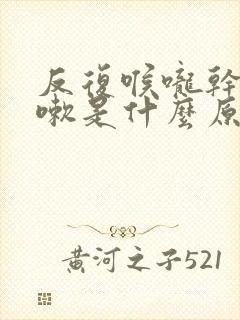 反復喉嚨幹
嗽是什麼原
黃河之子521